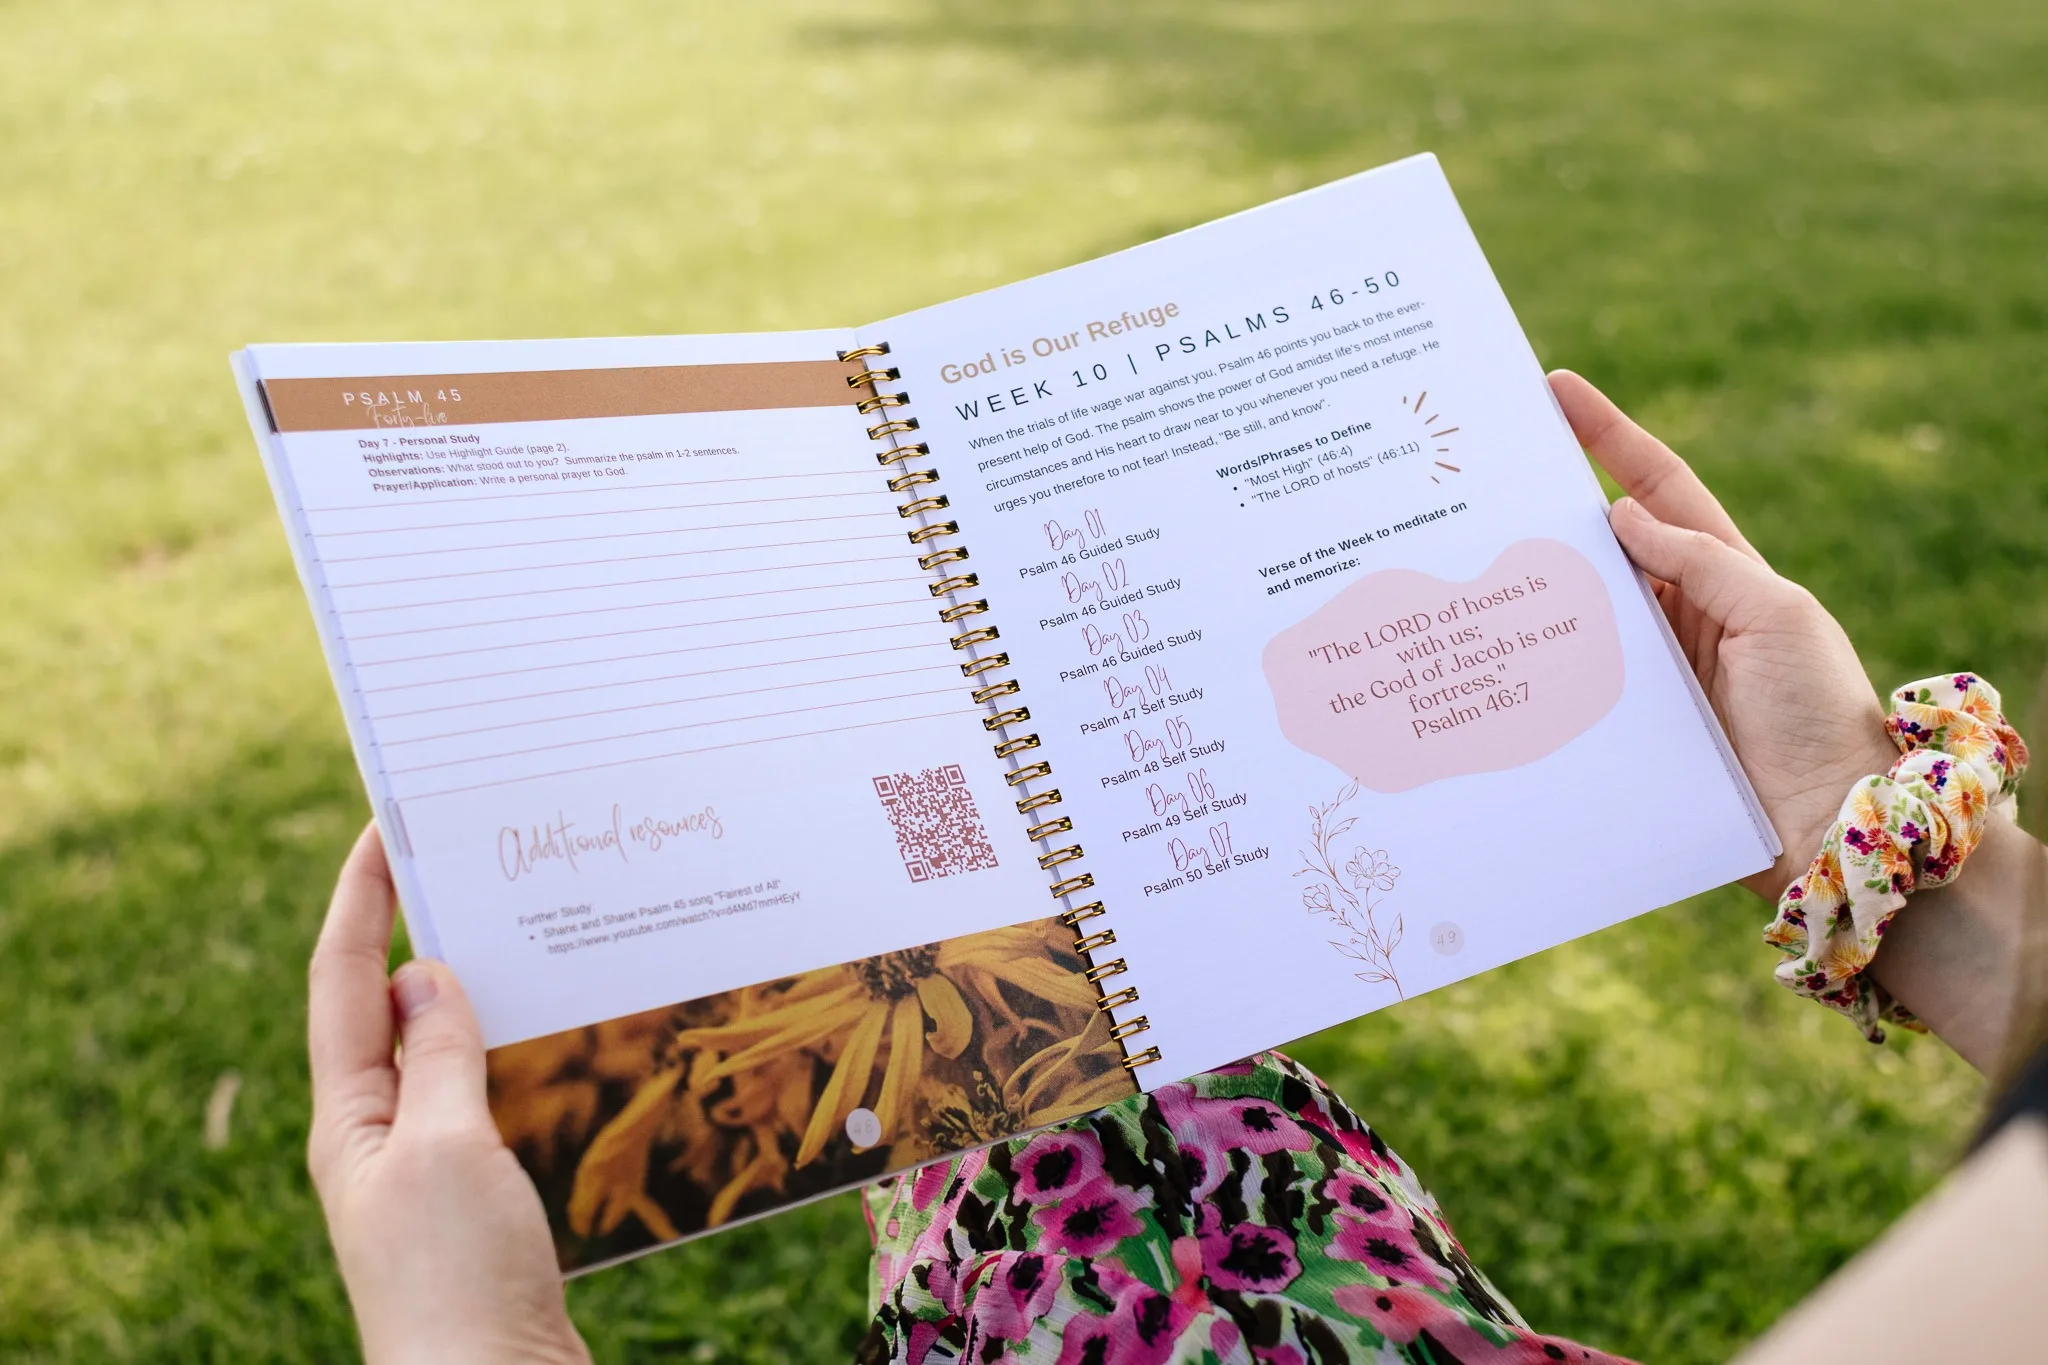 PSALM 45
Forty-five
Day 7 - Personal Study
Highlights: Use Highlight Guide (page 2).
Observations: What stood out to you? Summarize the psalm in 1-2 sentences.
Prayer/Application: Write a personal prayer to God.
Additional resources
Further Study:
• Shane and Shane Psalm 45 song "Fairest of All"
https://www.youtube.com/watch?v=d4Md7mmHEyY
48
God is Our Refuge
WEEK 10 | PSALMS 46-50
When the trials of life wage war against you, Psalm 46 points you back to the ever-
present help of God. The psalm shows the power of God amidst life's most intense
circumstances and His heart to draw near to you whenever you need a refuge. He
urges you therefore to not fear! Instead, "Be still, and know".
Day 01
Psalm 46 Guided Study
Day 02
Psalm 46 Guided Study
Day 03
Psalm 46 Guided Study
Day 04
Psalm 47 Self Study
Day 05
Psalm 48 Self Study
Day 06
Psalm 49 Self Study
Day 07
Psalm 50 Self Study
Words/Phrases to Define
• "Most High" (46:4)
• "The LORD of hosts" (46:11)
Verse of the Week to meditate on
and memorize:
"The LORD of hosts is
with us;
the God of Jacob is our
fortress."
Psalm 46:7
49